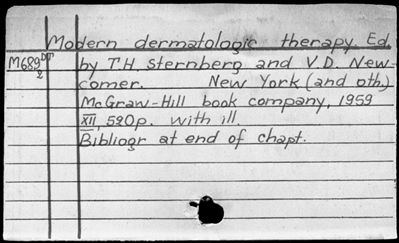 Modern dermatologic therapy. Ed.
M689 DT by T.H. Sternberg and V.D. New-
2 comer. New York (and oth.)
McGraw-Hill book company, 1959
XII, 590p. with ill.
Bibliogr at end of chapt.